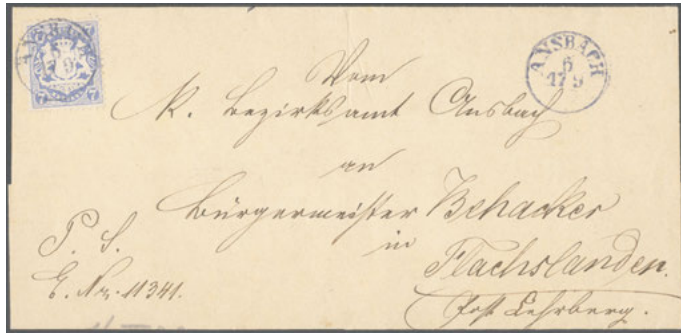 ANSBACH
7 7
ANSBACH
6
17 9
Vom
K. Bezirksamt Ansbach
an
Bürgermeister Behacker
in
Flachslanden.
Post Lehrberg.
P. S.
E. Nr. 11341.